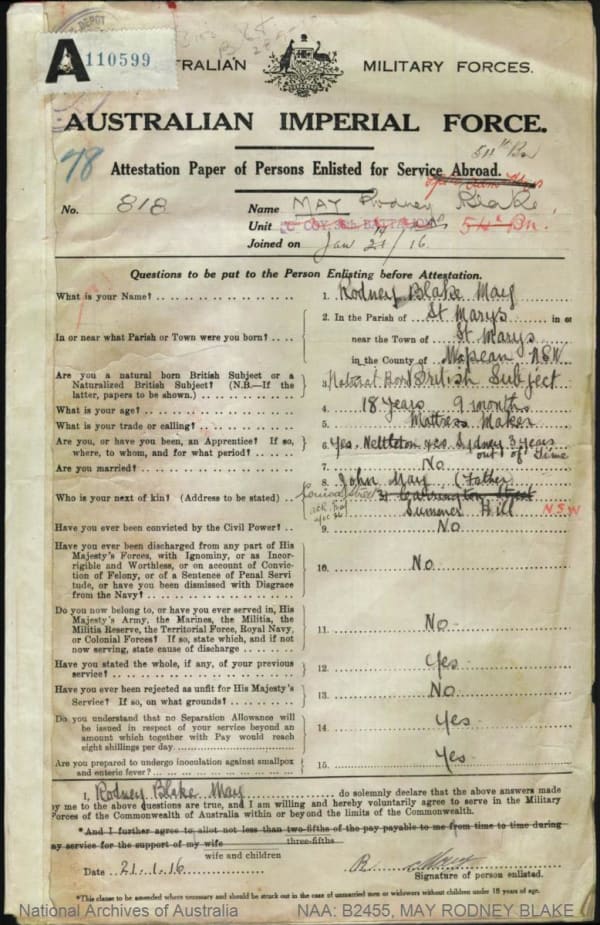 DEPOT
A 110599
TRALIAN MILITARY FORCES.
AUSTRALIAN IMPERIAL FORCE.
78
54th Bn
Attestation Paper of Persons Enlisted for Service Abroad.
No. 818 Name MAY Rodney Blake
Unit 54th Bn.
Joined on Jan 21/16
Questions to be put to the Person Enlisting before Attestation.
What is your Name? 1. Rodney Blake May
In or near what Parish or Town were you born? 2. In the Parish of St Marys in or
near the Town of St Marys
in the County of NSW
Are you a natural born British Subject or a
Naturalized British Subject? (N.B.—If the
latter, papers to be shown.) 3. Natural Born British Subject
What is your age? 4. 18 Years 9 months
What is your trade or calling? 5. Mattress Maker
Are you, or have you been, an Apprentice? If so,
where, to whom, and for what period? 6. Yes. Nettleton &co. Sydney 3 years
out of time
Are you married? 7. No
Who is your next of kin? (Address to be stated) 8. John May (Father)
Street
Summer Hill N.S.W
Have you ever been convicted by the Civil Power? 9. No
Have you ever been discharged from any part of His
Majesty's Forces, with Ignominy, or as Incor-
rigible and Worthless, or on account of Convic-
tion of Felony, or of a Sentence of Penal Servi
tude, or have you been Dismissed with Disgrace
from the Navy? 10. No
Do you now belong to, or have you ever served in, His
Majesty's Army, the Marines, the Militia, the
Militia Reserve, the Territorial Force, Royal Navy,
or Colonial Forces? If so, state which, and if not
now serving, state cause of discharge 11. No
Have you stated the whole, if any, of your previous
service? 12. Yes
Have you ever been rejected as unfit for His Majesty's
Service? If so, on what grounds? 13. No
Do you understand that no Separation Allowance will
be issued in respect of your service beyond an
amount which together with Pay would reach
eight shillings per day. 14. Yes
Are you prepared to undergo inoculation against smallpox
and enteric fever? 15. Yes
I, Rodney Blake May do solemnly declare that the above answers made
by me to the above questions are true, and I am willing and hereby voluntarily agree to serve in the Military
Forces of the Commonwealth of Australia within or beyond the limits of the Commonwealth.
*And I further agree to allot not less than two-fifths of the pay payable to me from time to time during
three-fifths
my service for the support of my wife
wife and children
Date 21.1.16 R. May
Signature of person enlisted.
*This clause to be amended where necessary and should be struck out in the case of unmarried men or widowers without children under 18 years of age.
National Archives of Australia NAA: B2455, MAY RODNEY BLAKE